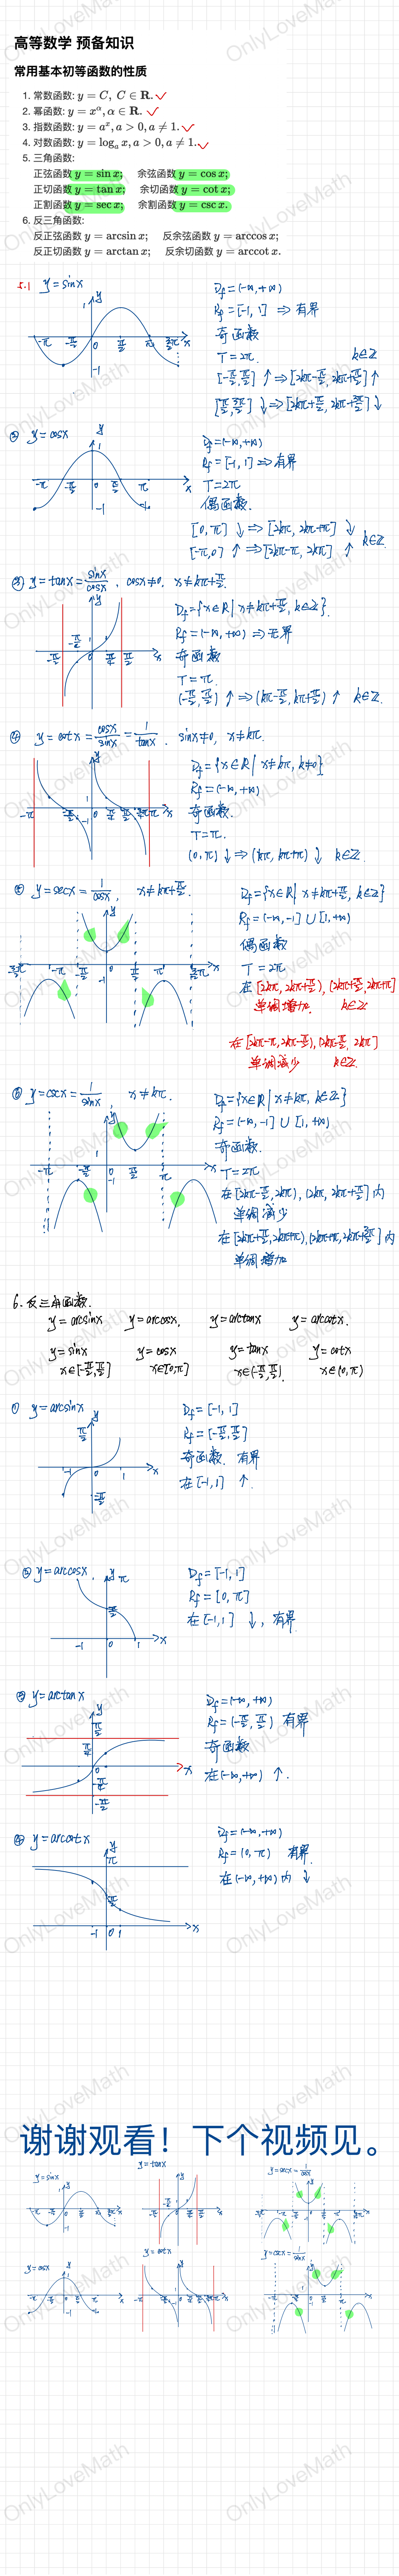 高等数学 预备知识
常用基本初等函数的性质
1. 常数函数: y = C, C ∈ R. ✓
2. 幂函数: y = x^α, α ∈ R. ✓
3. 指数函数: y = a^x, a > 0, a ≠ 1. ✓
4. 对数函数: y = log_a x, a > 0, a ≠ 1. ✓
5. 三角函数:
正弦函数 y = sin x; 余弦函数 y = cos x;
正切函数 y = tan x; 余切函数 y = cot x;
正割函数 y = sec x; 余割函数 y = csc x.
6. 反三角函数:
反正弦函数 y = arcsin x; 反余弦函数 y = arccos x;
反正切函数 y = arctan x; 反余切函数 y = arccot x.
5.1 y=sinx
Df=(-∞,+∞)
Rf=[-1,1] ⇒ 有界
奇函数
T=2π. k∈Z
[-π/2,π/2] ↑ ⇒ [2kπ-π/2, 2kπ+π/2] ↑
[π/2,3π/2] ↓ ⇒ [2kπ+π/2, 2kπ+3π/2] ↓
② y=cosx
Df=(-∞,+∞)
Rf=[-1,1] ⇒ 有界
T=2π
偶函数.
[0,π] ↓ ⇒ [2kπ, 2kπ+π] ↓
[-π,0] ↑ ⇒ [2kπ-π, 2kπ] ↑ k∈Z.
③ y=tanx=sinx/cosx, cosx≠0, x≠kπ+π/2.
Df={x∈R | x≠kπ+π/2, k∈Z}.
Rf=(-∞,+∞) ⇒ 无界
奇函数
T=π.
(-π/2,π/2) ↑ ⇒ (kπ-π/2, kπ+π/2) ↑ k∈Z.
④ y=cotx=cosx/sinx=1/tanx, sinx≠0, x≠kπ.
Df={x∈R | x≠kπ, k≠0}
Rf=(-∞,+∞)
奇函数.
T=π.
(0,π) ↓ ⇒ (kπ, kπ+π) ↓ k∈Z.
⑤ y=secx=1/cosx, x≠kπ+π/2.
Df={x∈R | x≠kπ+π/2, k∈Z}
Rf=(-∞,-1]∪[1,+∞)
偶函数
T=2π
在[2kπ, 2kπ+π/2), (2kπ+π/2, 2kπ+π]
单调增加. k∈Z
在[2kπ-π, 2kπ-π/2), (2kπ-π/2, 2kπ]
单调减少 k∈Z.
⑥ y=cscx=1/sinx x≠kπ.
Df={x∈R | x≠kπ, k∈Z}
Rf=(-∞,-1]∪[1,+∞)
奇函数.
T=2π
在[2kπ-π/2, 2kπ), (2kπ, 2kπ+π/2]内
单调减少
在[2kπ+π/2, 2kπ+π), (2kπ+π, 2kπ+3π/2]内
单调增加
6. 反三角函数.
y=arcsinx y=arccosx. y=arctanx y=arccotx.
y=sinx y=cosx y=tanx y=cotx
x∈[-π/2,π/2] x∈[0,π] x∈(-π/2,π/2). x∈(0,π)
① y=arcsinx
Df=[-1,1]
Rf=[-π/2,π/2]
奇函数. 有界
在[-1,1] ↑.
② y=arccosx.
Df=[-1,1]
Rf=[0,π]
在[-1,1] ↓, 有界.
③ y=arctanx
Df=(-∞,+∞)
Rf=(-π/2,π/2) 有界
奇函数
在(-∞,+∞) ↑.
④ y=arccotx
Df=(-∞,+∞)
Rf=(0,π) 有界.
在(-∞,+∞)内 ↓
谢谢观看！下个视频见。
y=sinx y=tanx y=secx=1/cosx
y=cosx y=cotx y=cscx=1/sinx
OnlyLoveMath